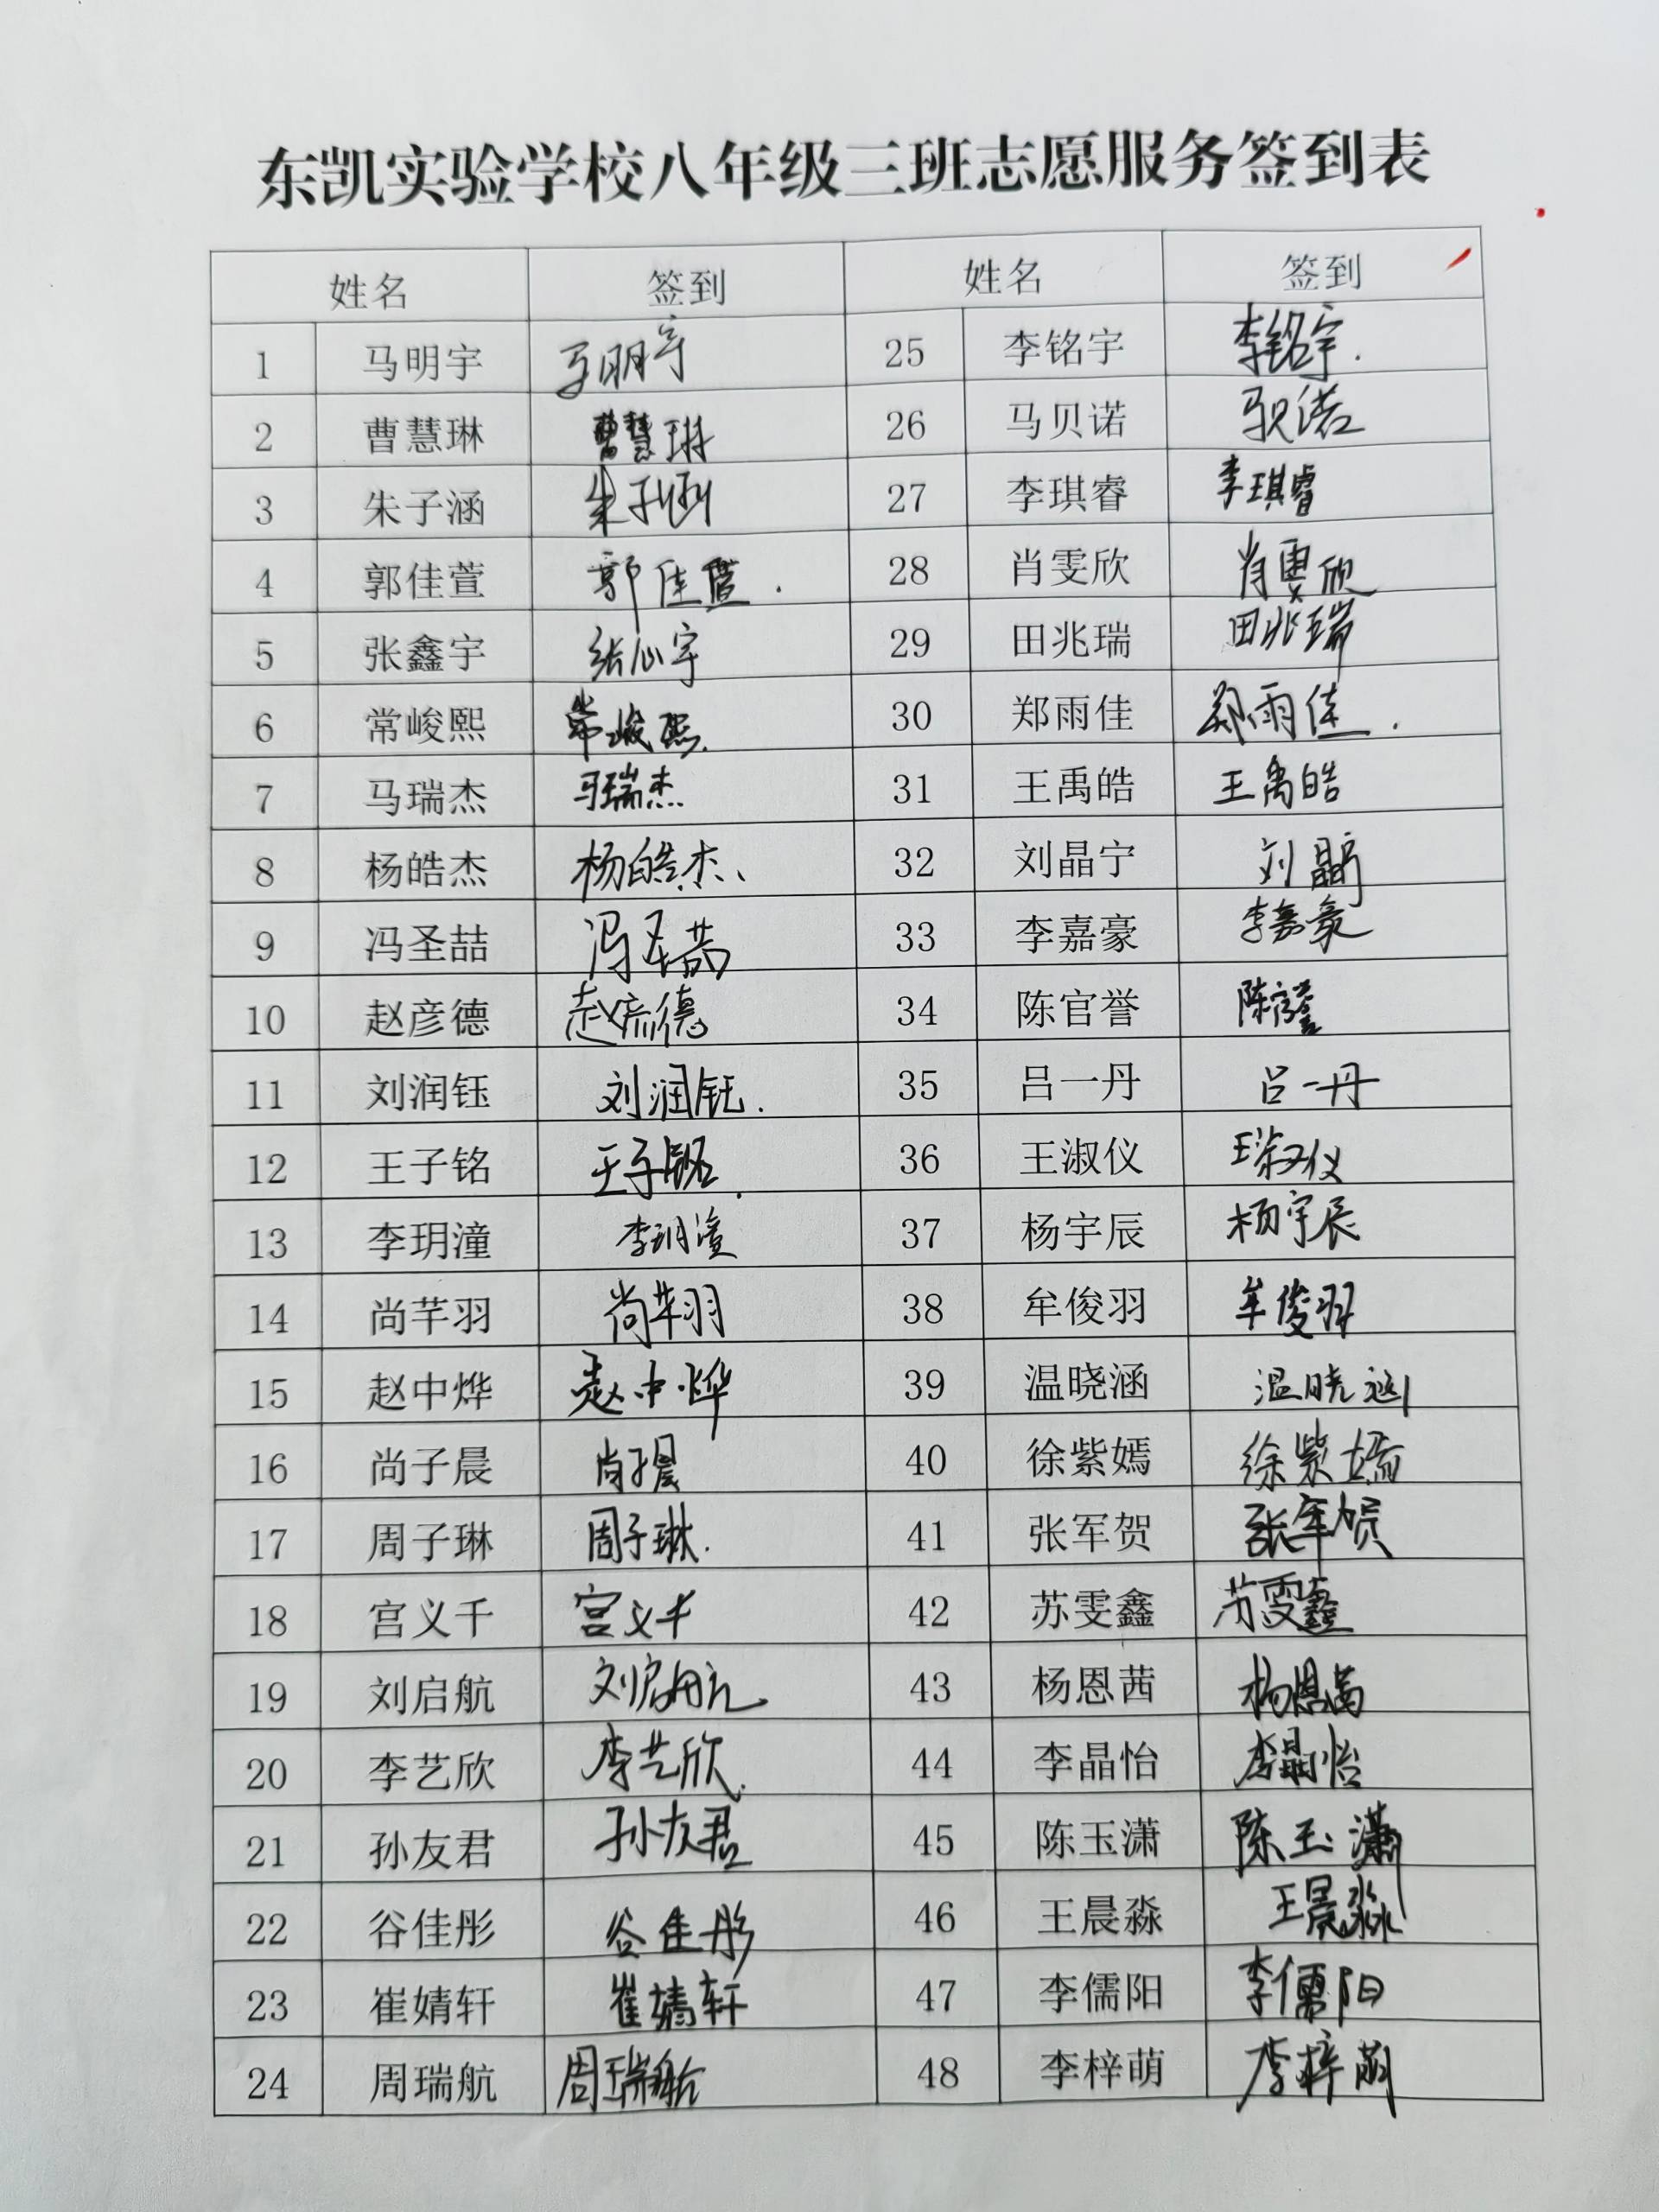 东凯实验学校八年级三班志愿服务签到表
姓名 签到 姓名 签到
1 马明宇 马明宇 25 李铭宇 李铭宇.
2 曹慧琳 曹慧琳 26 马贝诺 马贝诺
3 朱子涵 朱子涵 27 李琪睿 李琪睿
4 郭佳萱 郭佳萱. 28 肖雯欣 肖雯欣
5 张鑫宇 张心宇 29 田兆瑞 田兆瑞
6 常峻熙 常峻熙. 30 郑雨佳 郑雨佳.
7 马瑞杰 马瑞杰 31 王禹皓 王禹皓
8 杨皓杰 杨皓杰、 32 刘晶宁 刘晶宁
9 冯圣喆 冯圣喆 33 李嘉豪 李嘉豪
10 赵彦德 赵彦德 34 陈官誉 陈官誉
11 刘润钰 刘润钰. 35 吕一丹 吕一丹
12 王子铭 王子铭. 36 王淑仪 王淑仪
13 李玥潼 李玥潼 37 杨宇辰 杨宇辰
14 尚芊羽 尚芊羽 38 牟俊羽 牟俊羽
15 赵中烨 赵中烨 39 温晓涵 温晓涵
16 尚子晨 尚子晨 40 徐紫嫣 徐紫嫣
17 周子琳 周子琳. 41 张军贺 张军贺
18 宫义千 宫义千 42 苏雯鑫 苏雯鑫
19 刘启航 刘启航 43 杨恩茜 杨恩茜
20 李艺欣 李艺欣. 44 李晶怡 李晶怡
21 孙友君 孙友君 45 陈玉潇 陈玉潇
22 谷佳彤 谷佳彤 46 王晨淼 王晨淼
23 崔婧轩 崔婧轩 47 李儒阳 李儒阳
24 周瑞航 周瑞航 48 李梓萌 李梓萌